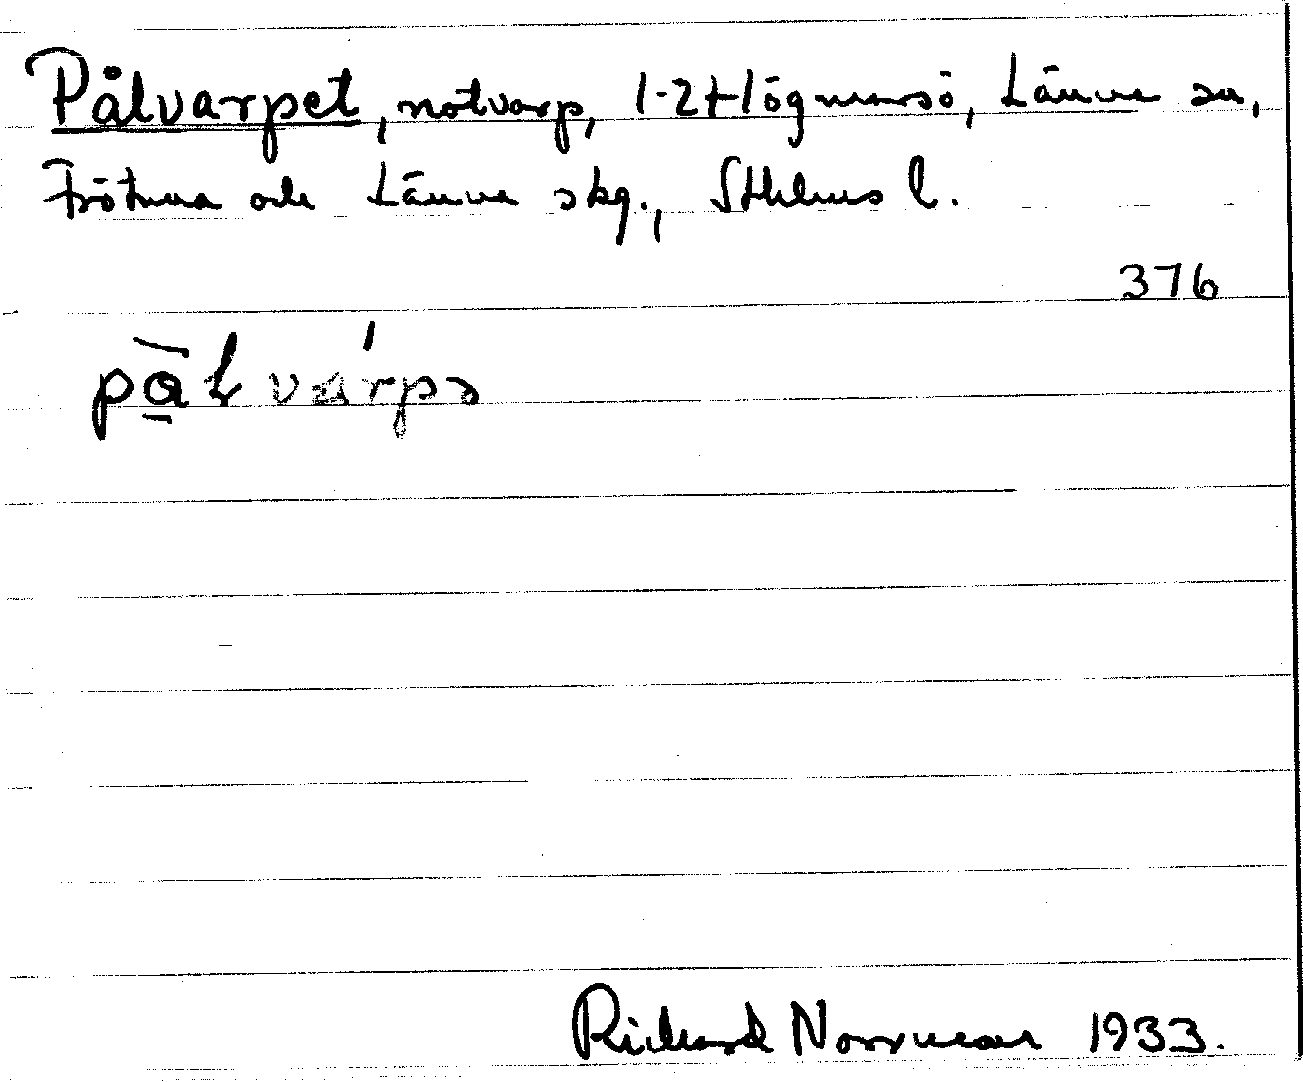 Pålvarpet, notvarp, 1-2 Högmarsö, Länna sn,
Frötuna och Länna skg., Sthlms l.
376
Rickard Norrman 1933.